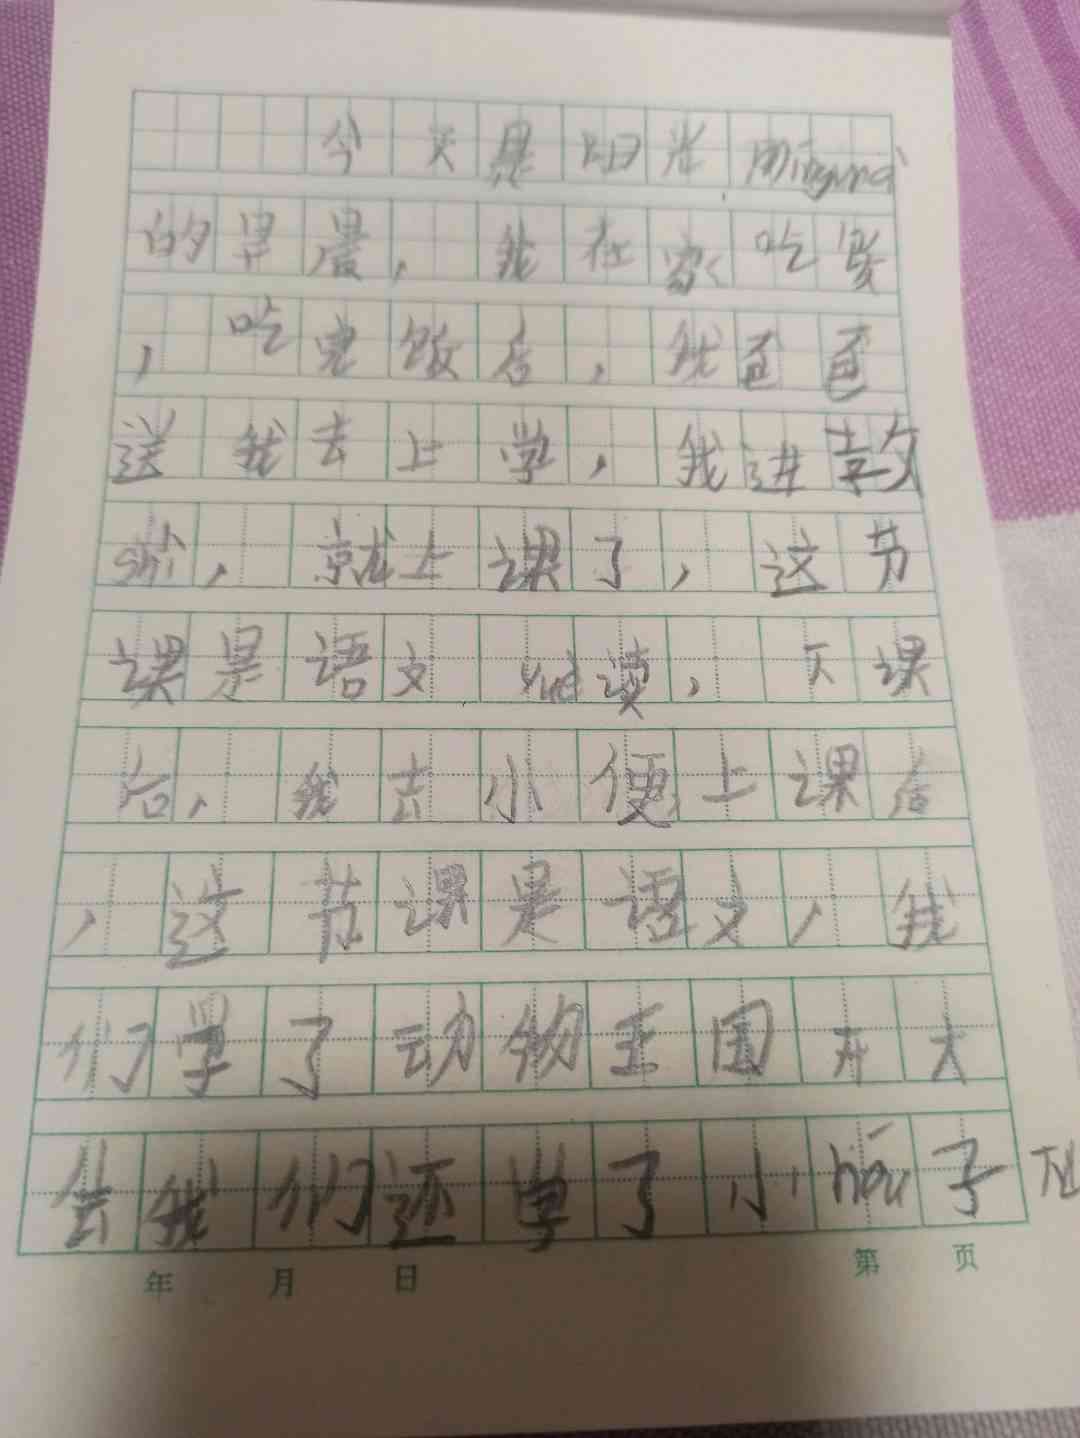 今天是阳光 mingmei
的早晨，我在家吃饭
，吃完饭后，我爸爸
送我去上学，我进教
shi，就上课了，这节
课是语文yue读，下课
后，我去小便上课后
，这节课是语文，我
们学了动物王国开大
会我们还学了小hóu子下山
年 月 日 第 页